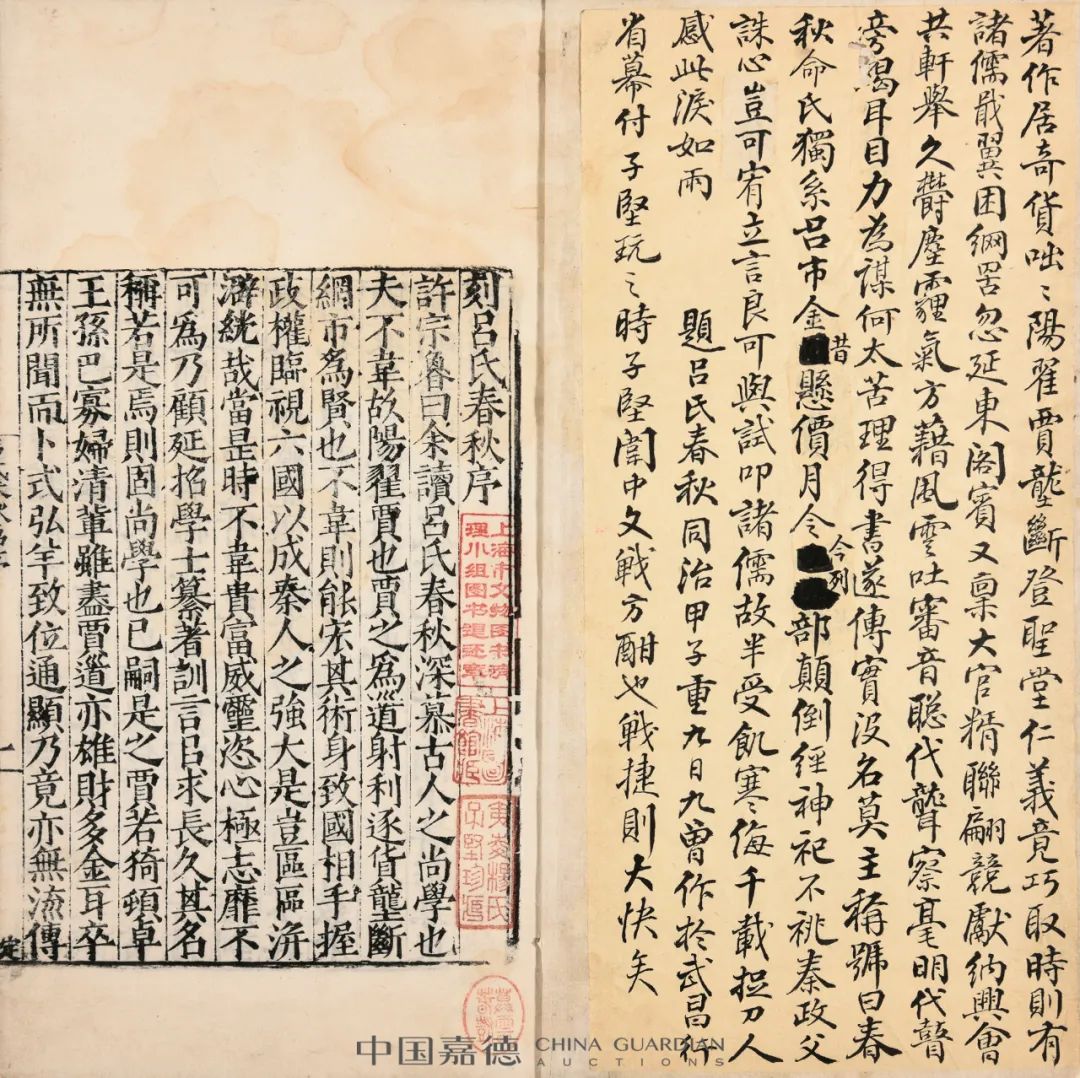 著作居奇貨咄〻陽翟賈壟斷登聖堂仁義竟巧取時則有
諸儒戢翼困網罟忽延東閣賓又稟大官精聯翩競獻納興會
共軒舉久鬱塵霾氣方藉風雲吐審音聰代聾察毫明代瞽
旁器耳目力為謀何太苦理得書遂傳實沒名莫主稱號曰春
秋命氏獨系呂市金昔懸價月令今列部顛倒經神祀不祧秦政父
誅心豈可宥立言良可與試叩諸儒故半受飢寒侮千載捉刀人
感此淚如雨 題呂氏春秋同治甲子重九日九曾作於武昌行
省幕付子堅玩之時子堅闈中文戰方酣也戰捷則大快矣
刻呂氏春秋序
許宗魯曰余讀呂氏春秋深慕古人之尚學也
夫不韋故陽翟賈也賈之為道射利逐貨壟斷
網市為賢也不韋則能宏其術身致國相手握
政權臨視六國以成秦人之強大是豈區區洴
澼絖哉當是時不韋貴富威靈恣心極志靡不
可為乃顧延招學士纂著訓言呂求長久其名
稱若是焉則固尚學也已嗣是之賈若猗頓卓
王孫巴寡婦清輩雖盡賈道亦雄財多金耳卒
無所聞而卜式弘羊致位通顯乃竟亦無流傳
上海市文物图书清
理小组图书退还章
黃岡楊氏
子堅珍藏
中国嘉德 CHINA GUARDIAN
AUCTIONS